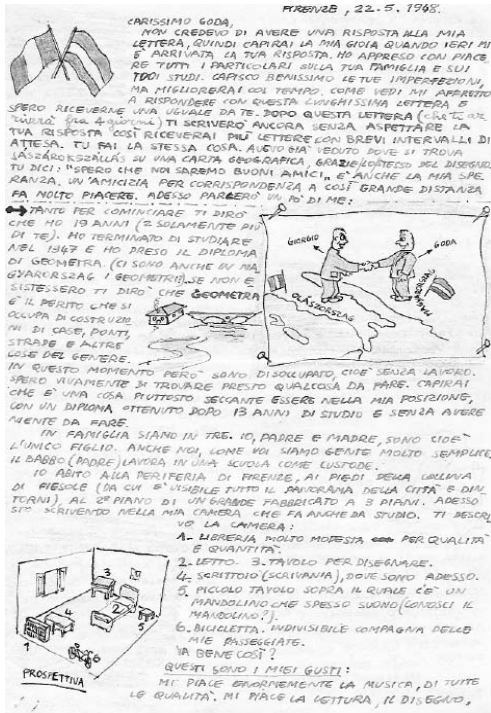 FIRENZE, 22.5.1948.
CARISSIMO GODA,
NON CREDEVO DI AVERE UNA RISPOSTA ALLA MIA
LETTERA, QUINDI CAPIRAI LA MIA GIOIA QUANDO IERI MI
È ARRIVATA LA TUA RISPOSTA. HO APPRESO CON PIACE
RE TUTTI I PARTICOLARI SULLA TUA FAMIGLIA E SUI
TUOI STUDI. CAPISCO BENISSIMO LE TUE IMPERFEZIONI,
MA MIGLIORERAI COL TEMPO. COME VEDI MI AFFRETTO
A RISPONDERE CON QUESTA LUNGHISSIMA LETTERA E
SPERO RICEVERNE UNA UGUALE DA TE. DOPO QUESTA LETTERA (che ti ar
riverà fra 4 giorni) TI SCRIVERO' ANCORA SENZA ASPETTARE LA
TUA RISPOSTA COSÌ RICEVERAI PIÙ LETTERE CON BREVI INTERVALLI DI
ATTESA. TU FAI LA STESSA COSA. AVEVO GIA' VEDUTO DOVE SI TROVA
JÁSZÁROKSZÁLLÁS SU UNA CARTA GEOGRAFICA, GRAZIE LO STESSO DEL DISEGNO.
TU DICI: "SPERO CHE NOI SAREMO BUONI AMICI" E' ANCHE LA MIA SPE
RANZA. UN'AMICIZIA PER CORRISPONDENZA A COSÌ GRANDE DISTANZA
FA MOLTO PIACERE. ADESSO PARLERO' UN PO' DI ME:
TANTO PER COMINCIARE TI DIRO'
CHE HO 19 ANNI (2 SOLAMENTE PIÙ
DI TE). HO TERMINATO DI STUDIARE
NEL 1947 E HO PRESO IL DIPLOMA
DI GEOMETRA. (CI SONO ANCHE SU MA
GYARORSZAG I GEOMETRI?). SE NON E
SISTESSERO TI DIRO' CHE GEOMETRA
È IL PERITO CHE SI
OCCUPA DI COSTRUZIO
NI DI CASE, PONTI,
STRADE E ALTRE
COSE DEL GENERE.
GIORGIO
GODA
OLÁSZORSZAG
MAGYAR
ORSZAG
IN QUESTO MOMENTO PERO' SONO DISOCCUPATO, CIOE' SENZA LAVORO.
SPERO VIVAMENTE DI TROVARE PRESTO QUALCOSA DA FARE. CAPIRAI
CHE È UNA COSA PIUTTOSTO SECCANTE ESSERE NELLA MIA POSIZIONE,
CON UN DIPLOMA OTTENUTO DOPO 13 ANNI DI STUDIO E SENZA AVERE
NIENTE DA FARE.
IN FAMIGLIA SIAMO IN TRE. IO, PADRE E MADRE, SONO CIOE'
L'UNICO FIGLIO. ANCHE NOI, COME VOI SIAMO GENTE MOLTO SEMPLICE,
IL BABBO (PADRE) LAVORA IN UNA SCUOLA COME CUSTODE.
IO ABITO ALLA PERIFERIA DI FIRENZE, AI PIEDI DELLA COLLINA
DI FIESOLE (DA CUI E' VISIBILE TUTTO IL PANORAMA DELLA CITTA' E DIN
TORNI), AL 2° PIANO DI UN GRANDE FABBRICATO A 3 PIANI. ADESSO
STO SCRIVENDO NELLA MIA CAMERA CHE FA ANCHE DA STUDIO. TI DESCRI
VO LA CAMERA:
1- LIBRERIA MOLTO MODESTA PER QUALITA'
E QUANTITÀ.
2- LETTO. 3- TAVOLO PER DISEGNARE.
4- SCRITTOIO (SCRIVANIA), DOVE SONO ADESSO.
5. PICCOLO TAVOLO SOPRA IL QUALE C'E' UN
MANDOLINO CHE SPESSO SUONO (CONOSCI IL
MANDOLINO?).
6. BICICLETTA. INDIVISIBILE COMPAGNA DELLE
MIE PASSEGGIATE.
VA BENE COSÌ?
QUESTI SONO I MIEI GUSTI:
MI PIACE ENORMEMENTE LA MUSICA, DI TUTTE
LE QUALITA'. MI PIACE LA LETTURA, IL DISEGNO,
1
2
3
4
5
6
PROSPETTIVA